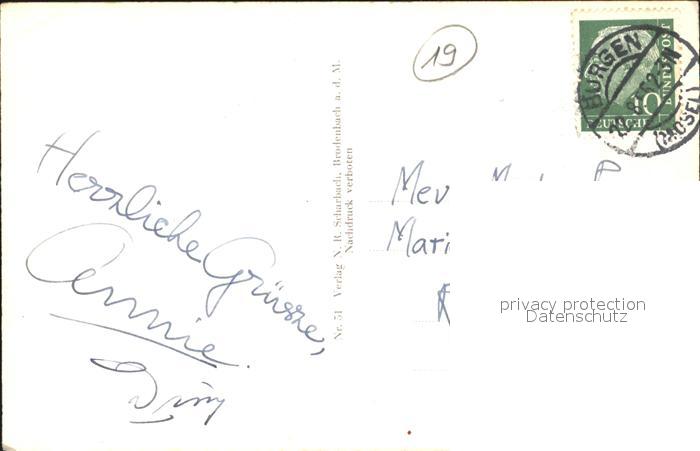 19
BURGEN
(MOSEL)
10
DEUTSCHE
BUNDESPOST
Herzliche Grüsse,
Annie.
Nr. 51 Verlag N. R. Scharbach, Brodenbach a. d. M.
Nachdruck verboten
Mev
Mari
privacy protection
Datenschutz